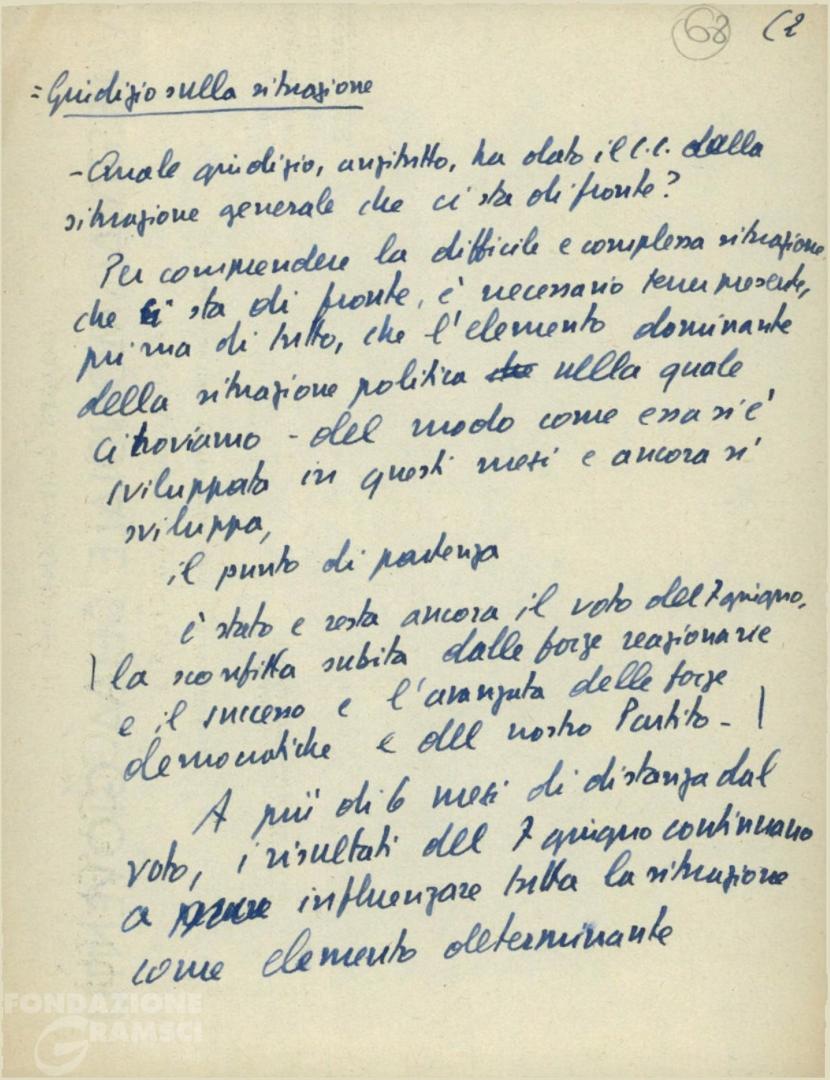 68 (2
= Giudizio sulla situazione
- Quale giudizio, anzitutto, ha dato il C.C. della
situazione generale che ci sta di fronte?
Per comprendere la difficile e complessa situazione
che ci sta di fronte, è necessario tener presente,
prima di tutto, che l'elemento dominante
della situazione politica che nella quale
ci troviamo - del modo come essa si è
sviluppata in questi mesi e ancora si
sviluppa,
il punto di partenza
è stato e resta ancora il voto del 7 giugno,
| la sconfitta subita dalle forze reazionarie
e il successo e l'avanzata delle forze
democratiche e del nostro Partito - |
A più di 6 mesi di distanza dal
voto, i risultati del 7 giugno continuano
a influenzare tutta la situazione
come elemento determinante
FONDAZIONE
GRAMSCI